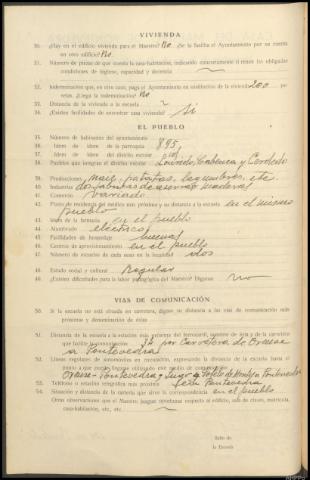 VIVIENDA
30. ¿Hay en el edificio vivienda para el Maestro? No. ¿Se la facilita el Ayuntamiento por su cuenta
en otro edificio? No.
31. Número de piezas de que consta la casa-habitación, indicando concretamente si reúne las obligadas
condiciones de higiene, capacidad y decencia ~
32. Indemnización que, en otro caso, paga el Ayuntamiento en sustitución de la vivienda 200 pe-
setas. ¿Llega la indemnización? No
33. Distancia de la vivienda a la escuela ~
34. ¿Existen facilidades de encontrar una vivienda? Si
EL PUEBLO
35. Número de habitantes del ayuntamiento
36. Idem de idem de la parroquia 895
37. Idem de idem del distrito escolar
38. Pueblos que integran el distrito escolar Cerdedo
39. Producciones maiz, patatas, legumbres, etc.
40. Industrias dos fabricas de aserrar maderas
41. Comercio variado
42. Punto de residencia del médico más próximo y su distancia a la escuela en el mismo
pueblo
43. Idem de la farmacia en el pueblo
44. Alumbrado eléctrico
45. Facilidades de hospedaje buenas
46. Centros de aprovisionamiento en el pueblo
47. Número de escuelas de cada sexo en la localidad dos
48. Estado social y cultural Regular
49. ¿Existen dificultades para la labor pedagógica del Maestro? Díganse no
VIAS DE COMUNICACIÓN
50. Si la escuela no está situada en carretera, dígase su distancia a las vías de comunicación más
próximas y denominación de éstas
51. Distancia de la escuela a la estación más próxima del ferrocarril, nombre de ésta y de la carretera
que facilita la comunicación por Carretera de Orense
a Pontevedra
52. Líneas regulares de automóviles en circulación, expresando la distancia de la escuela hasta el
punto a que pueda llegarse utilizando este medio de comunicación
Orense-Pontevedra y Lugo a Pontevedra
53. Teléfono o estación telegráfica más próxima Pontevedra
54. Situación y distancia de la cartería que sirve la correspondencia en el pueblo
Otras observaciones que el Maestro juzgue oportunas respecto al edificio, sala de clases, matrícula,
casa-habitación, etc., etc. ~
Sello de
la Escuela